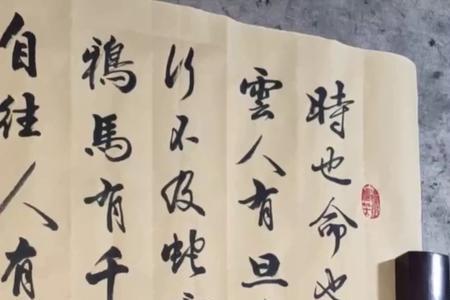 時也命也
雲人有旦
行不及蛇
鴉馬有千
自往人有